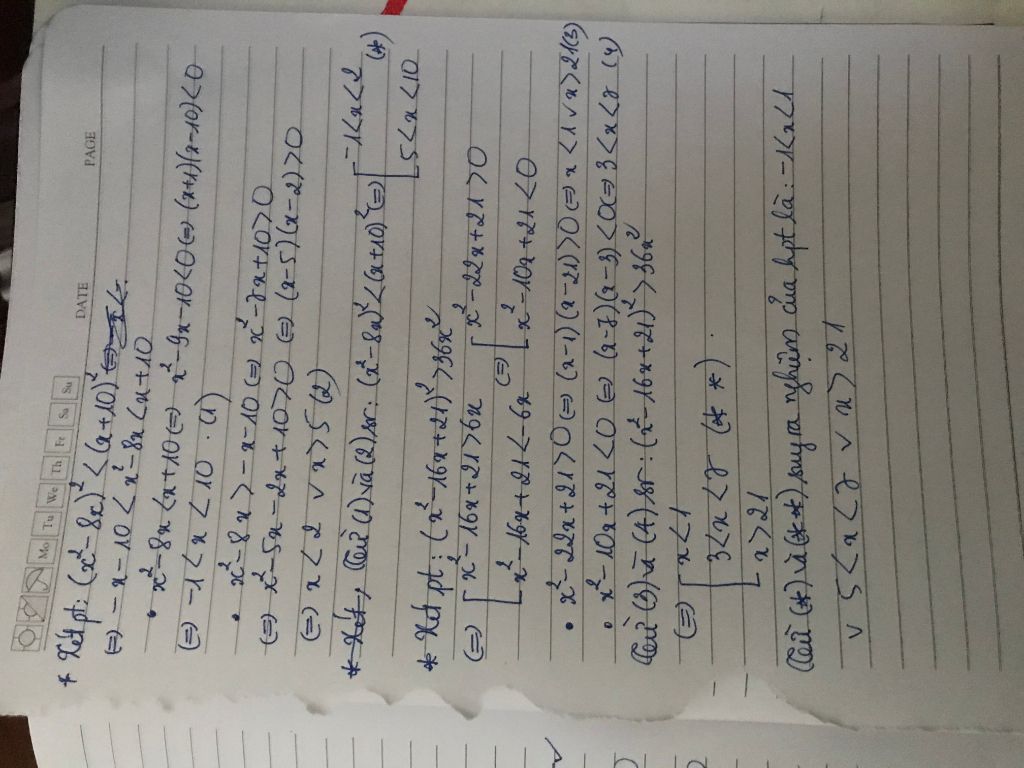 DATE PAGE
Mo Tu We Th Fr Sa Su
* Xét pt: (x² - 8x)² < (x + 10)²
(=) - x - 10 < x² - 8x < x + 10
• x² - 8x < x + 10 (=) x² - 9x - 10 < 0 (=) (x+1)(x-10) < 0
(=) -1 < x < 10 . (1)
• x² - 8x > - x - 10 (=) x² - 7x + 10 > 0
(=) x² - 5x - 2x + 10 > 0 (=) (x - 5)(x - 2) > 0
(=) x < 2 v x > 5 (2)
* Xét, Từ (1) và (2) sr: (x² - 8x)² < (x + 10)² (=) [ -1 < x < 2 (*)
5 < x < 10
* Xét pt: (x² - 16x + 21)² > 36x²
(=) [ x² - 16x + 21 > 6x (=) [ x² - 22x + 21 > 0
x² - 16x + 21 < - 6x x² - 10x + 21 < 0
• x² - 22x + 21 > 0 (=) (x - 1)(x - 21) > 0 (=) x < 1 v x > 21 (3)
• x² - 10x + 21 < 0 (=) (x - 7)(x - 3) < 0 (=) 3 < x < 7 (4)
Từ (3) và (4) sr: (x² - 16x + 21)² > 36x²
(=) [ x < 1
3 < x < 7 (* *) .
x > 21
Từ (*) và (**) suy ra nghiệm của hpt là: -1 < x < 1
v 5 < x < 7 v x > 21